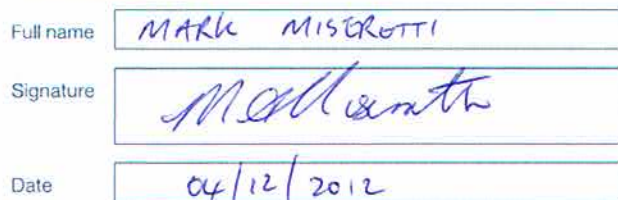 Full name MARK MISEROTTI
Signature
Date 04/12/2012